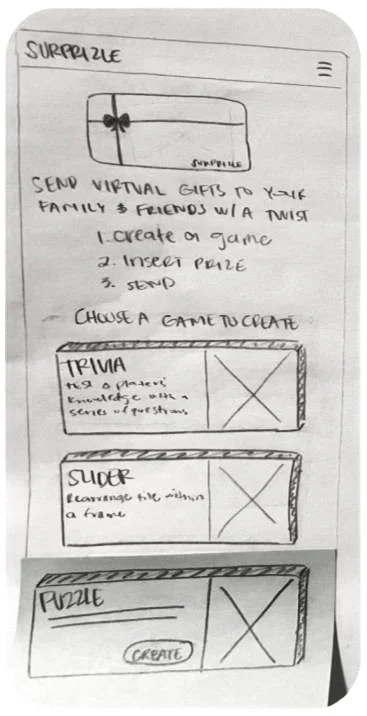 SURPRIZLE
SURPRIZLE
SEND VIRTUAL GIFTS TO YOUR
FAMILY & FRIENDS W/ A TWIST
1. Create a game
2. INSERT PRIZE
3. SEND
CHOOSE A GAME TO CREATE
TRIVIA
test a players'
knowledge with a
series of questions
SLIDER
Rearrange tile within
a frame
PUZZLE
CREATE